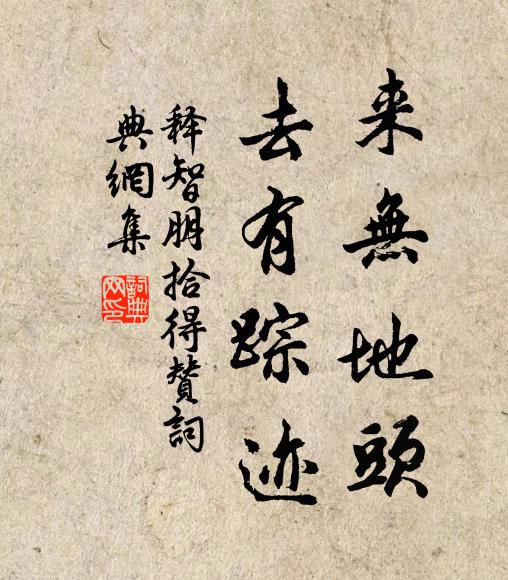 来無地頭
去有踪迹
释智朋拾得賛詞
典網集
詞典
网印